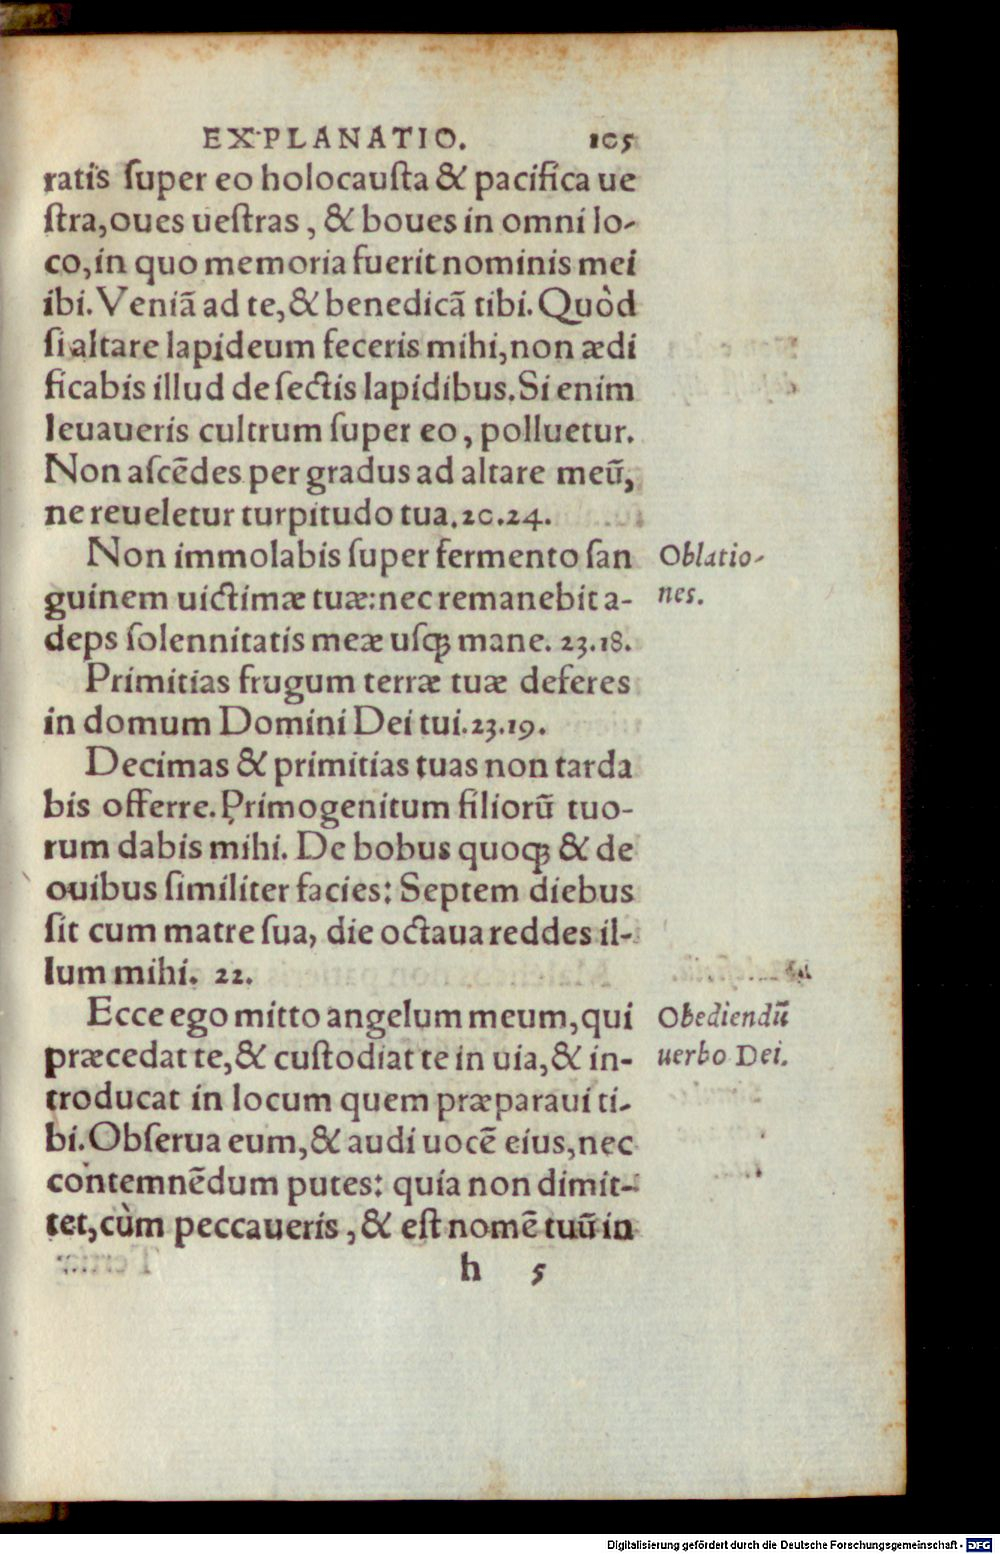 EXPLANATIO. 105
ratis ſuper eo holocauſta & pacifica ue
ſtra, oues ueſtras, & boues in omni lo-
co, in quo memoria fuerit nominis mei
ibi. Veniã ad te, & benedicã tibi. Quòd
ſi altare lapideum feceris mihi, non ædi
ficabis illud de ſectis lapidibus. Si enim
leuaueris cultrum ſuper eo, polluetur.
Non aſcẽdes per gradus ad altare meũ,
ne reueletur turpitudo tua. 20.24.
Non immolabis ſuper fermento ſan
guinem uictimæ tuæ: nec remanebit a-
deps ſolennitatis meæ uſqꝫ mane. 23.18.
Oblatio-
nes.
Primitias frugum terræ tuæ deferes
in domum Domini Dei tui. 23.19.
Decimas & primitias tuas non tarda
bis offerre. Primogenitum filiorũ tuo-
rum dabis mihi. De bobus quoqꝫ & de
ouibus ſimiliter facies: Septem diebus
ſit cum matre ſua, die octaua reddes il-
lum mihi. 22.
Ecce ego mitto angelum meum, qui
præcedat te, & cuſtodiat te in uia, & in-
troducat in locum quem præparaui ti-
bi. Obſerua eum, & audi uocẽ eius, nec
contemnẽdum putes: quia non dimit-
tet, cùm peccaueris, & eſt nomẽ tuũ in
Obediendũ
uerbo Dei.
h 5
Digitalisierung gefördert durch die Deutsche Forschungsgemeinschaft - DFG